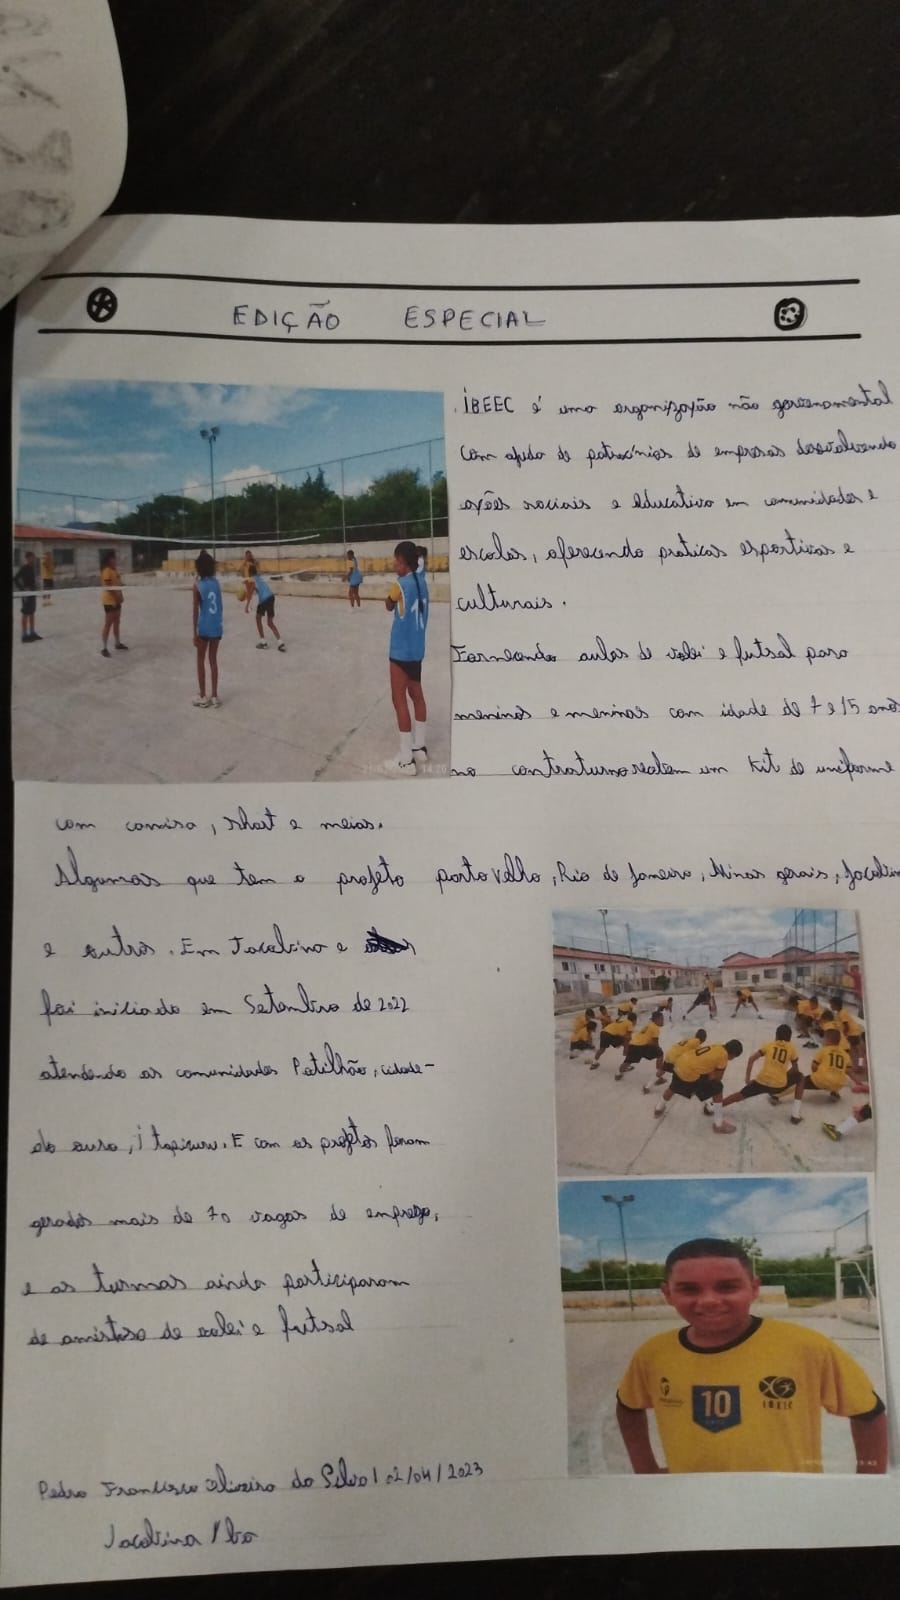 EDIÇÃO ESPECIAL
IBEEC é uma organização não governamental
com ajuda de patrocínios de empresas desenvolvendo
ações sociais e educativa em comunidades e
escolas, oferecendo praticas esportivas e
culturais.
Fornecendo aulas de volei e futsal para
meninos e meninas com idade de 7 e 15 anos
no contraturno um Kit de uniforme
com camisa, short e meias.
Algumas que tem o projeto porto velho, Rio de janeiro, Minas gerais,
e outros. Em Jacobina e
foi iniciado em Setembro de 2022
atendendo as comunidades cidade-
do ouro, itapicuru. E com os projetos foram
gerados mais de 70 vagas de emprego,
e as turmas ainda participaram
de amistoso de volei e futsal
Pedro Francisco Oliveira da Silva / 02/04/2023
Jacobina / ba
3
10
10
10
IBEEC